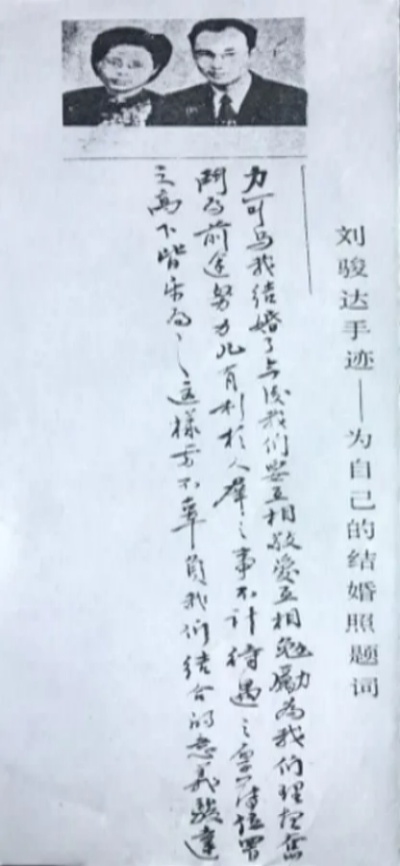 刘骏达手迹——为自己的结婚照题词
力可与我结婚了与后我们要互相敬爱互相勉励为我们理想奋
鬥为前途努力凡有利於人群之事不计待遇之厚薄位置
之高下皆乐为之这樣方不辜負我们结合的意义駿達